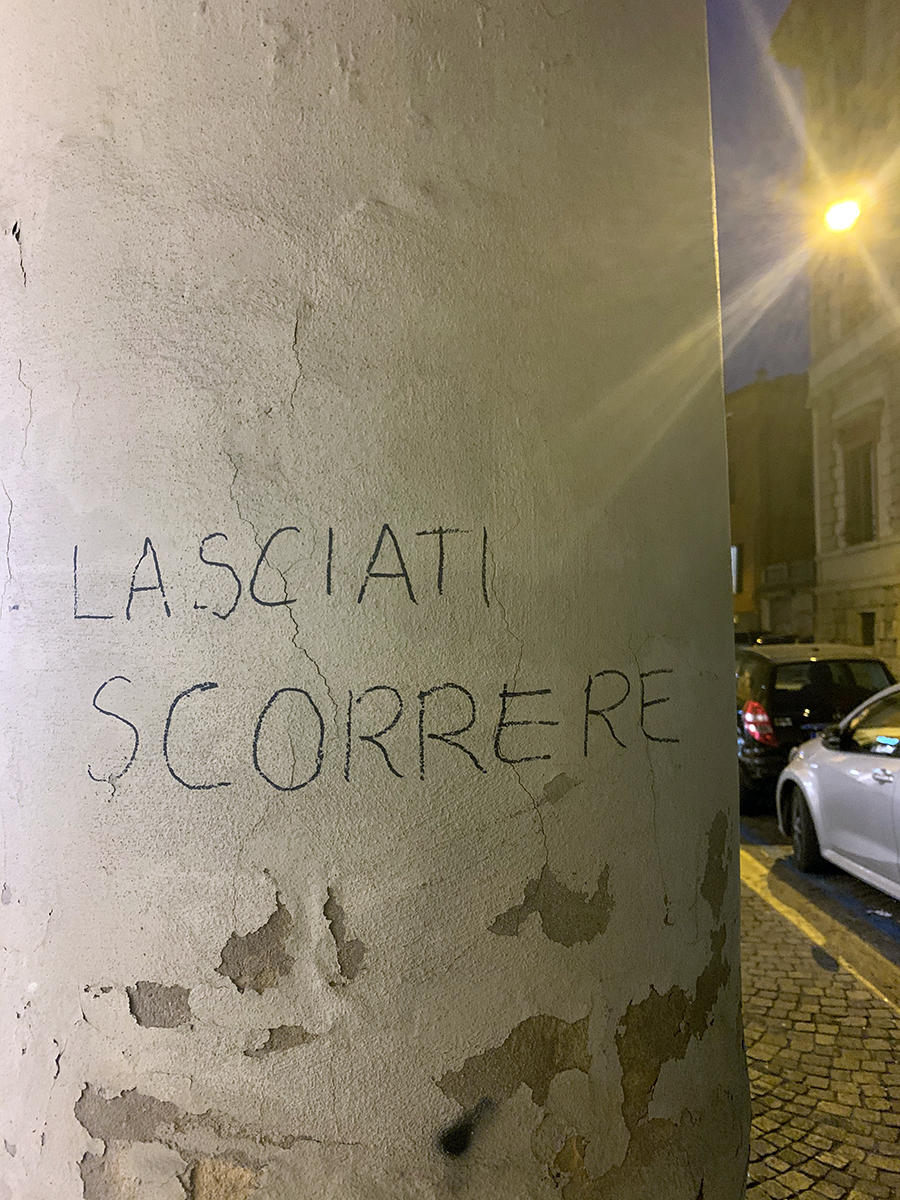 LASCIATI
SCORRERE